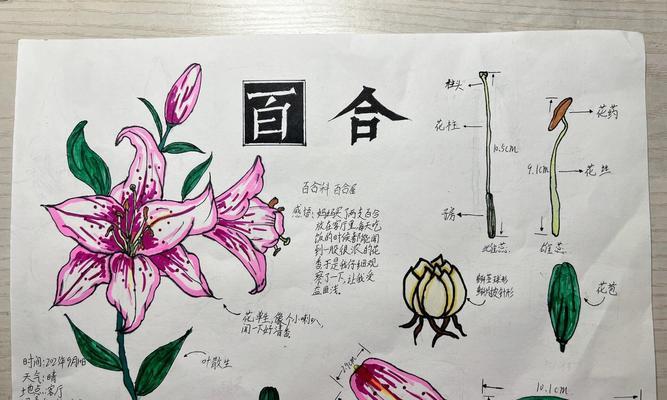 百合
柱头
花柱
10.5cm
子房
雌蕊
花药
9.1cm
花丝
雄蕊
百合科 百合属
感悟：妈妈买了两支百合
放在客厅里,每天吃
饭的时候都能闻
到一股很浓的花
香于是我仔细观
察了一下,让我受
益匪浅。
花单生,像个小喇叭,
闻一下好清香
鳞茎球形
鳞片披针形
花苞
叶散生
时间:2021年9月10日
天气:晴
地点:客厅
10.1cm